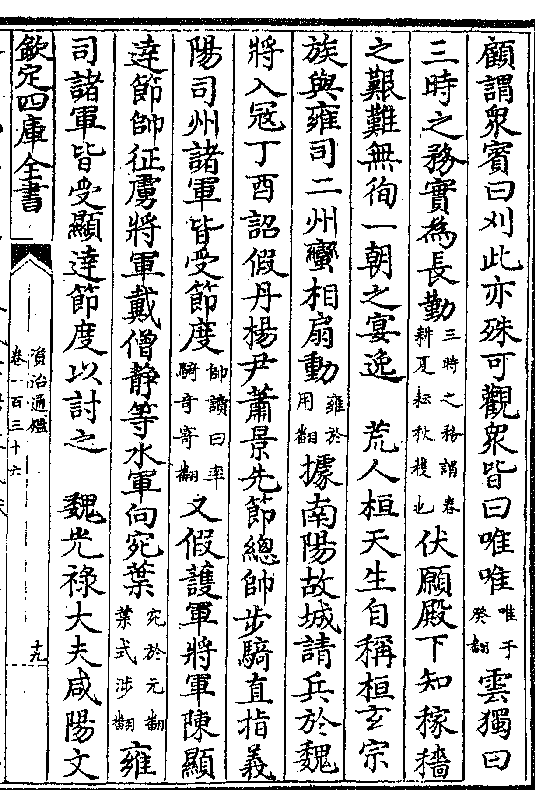 顧謂衆賓曰刈此亦殊可觀衆皆曰唯唯唯于癸翻雲獨曰
三時之務實為長勤三時之務謂春耕夏耘秋穫也伏願殿下知稼穡
之艱難無徇一朝之宴逸　荒人桓天生自稱桓玄宗
族與雍司二州蠻相扇動雍於用翻據南陽故城請兵於魏
將入冦丁酉詔假丹楊尹蕭景先節總帥步騎直指義
陽司州諸軍皆受節度帥讀曰率騎奇寄翻又假護軍將軍陳顯
達節帥征虜將軍戴僧靜等水軍向宛葉宛於元翻葉式涉翻雍
司諸軍皆受顯達節度以討之　魏光禄大夫咸陽文
欽定四庫全書
資治通鑑
卷一百三十六
十九